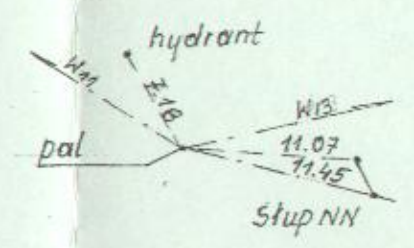 hydrant
W11
7.18
W13
pal
11.07
11.45
Słup NN